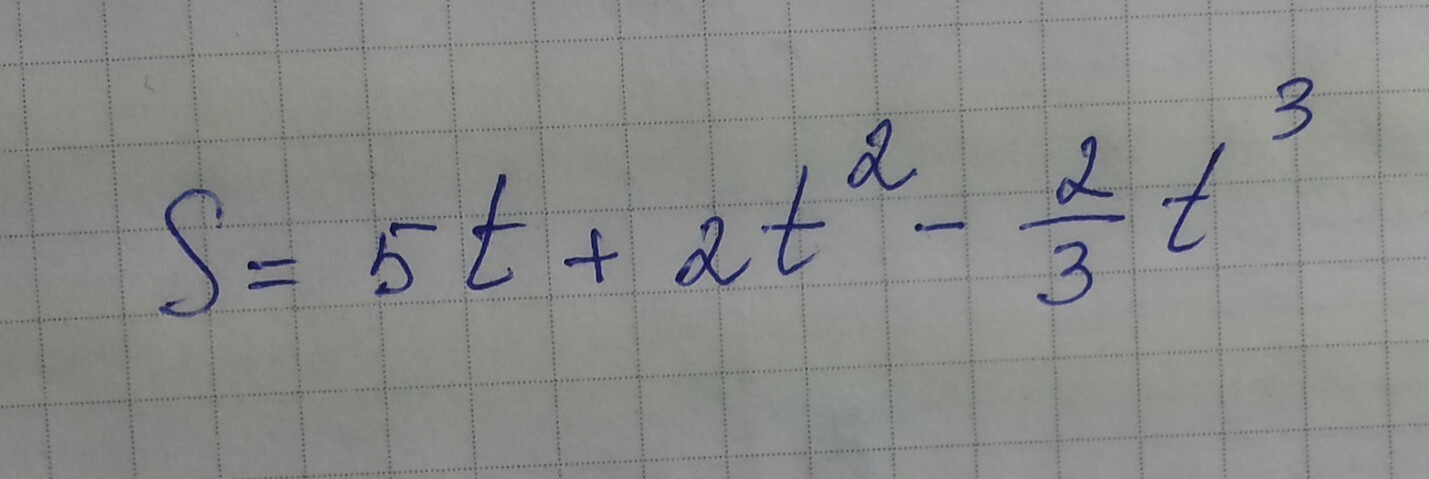 S = 5t + 2t² - 2/3 t³